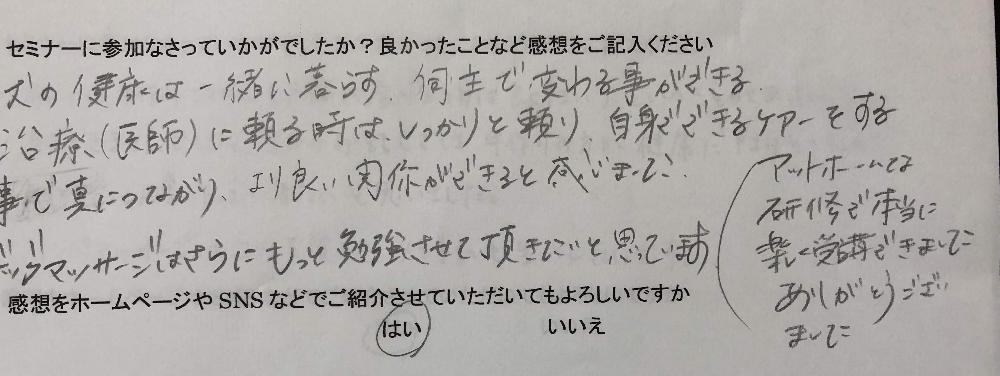 セミナーに参加なさっていかがでしたか？良かったことなど感想をご記入ください
犬の健康は一緒に暮らす、飼主で変わる事ができる
治療（医師）に頼る時は、しっかりと頼り、自身でできるケアーをする
事で真につながり、より良い関係ができると感じました。
ドッグマッサージはさらにもっと勉強させて頂きたいと思っています
アットホームな
研修で本当に
楽しく受講できました
ありがとうござい
ました
感想をホームページや SNS などでご紹介させていただいてもよろしいですか
はい いいえ